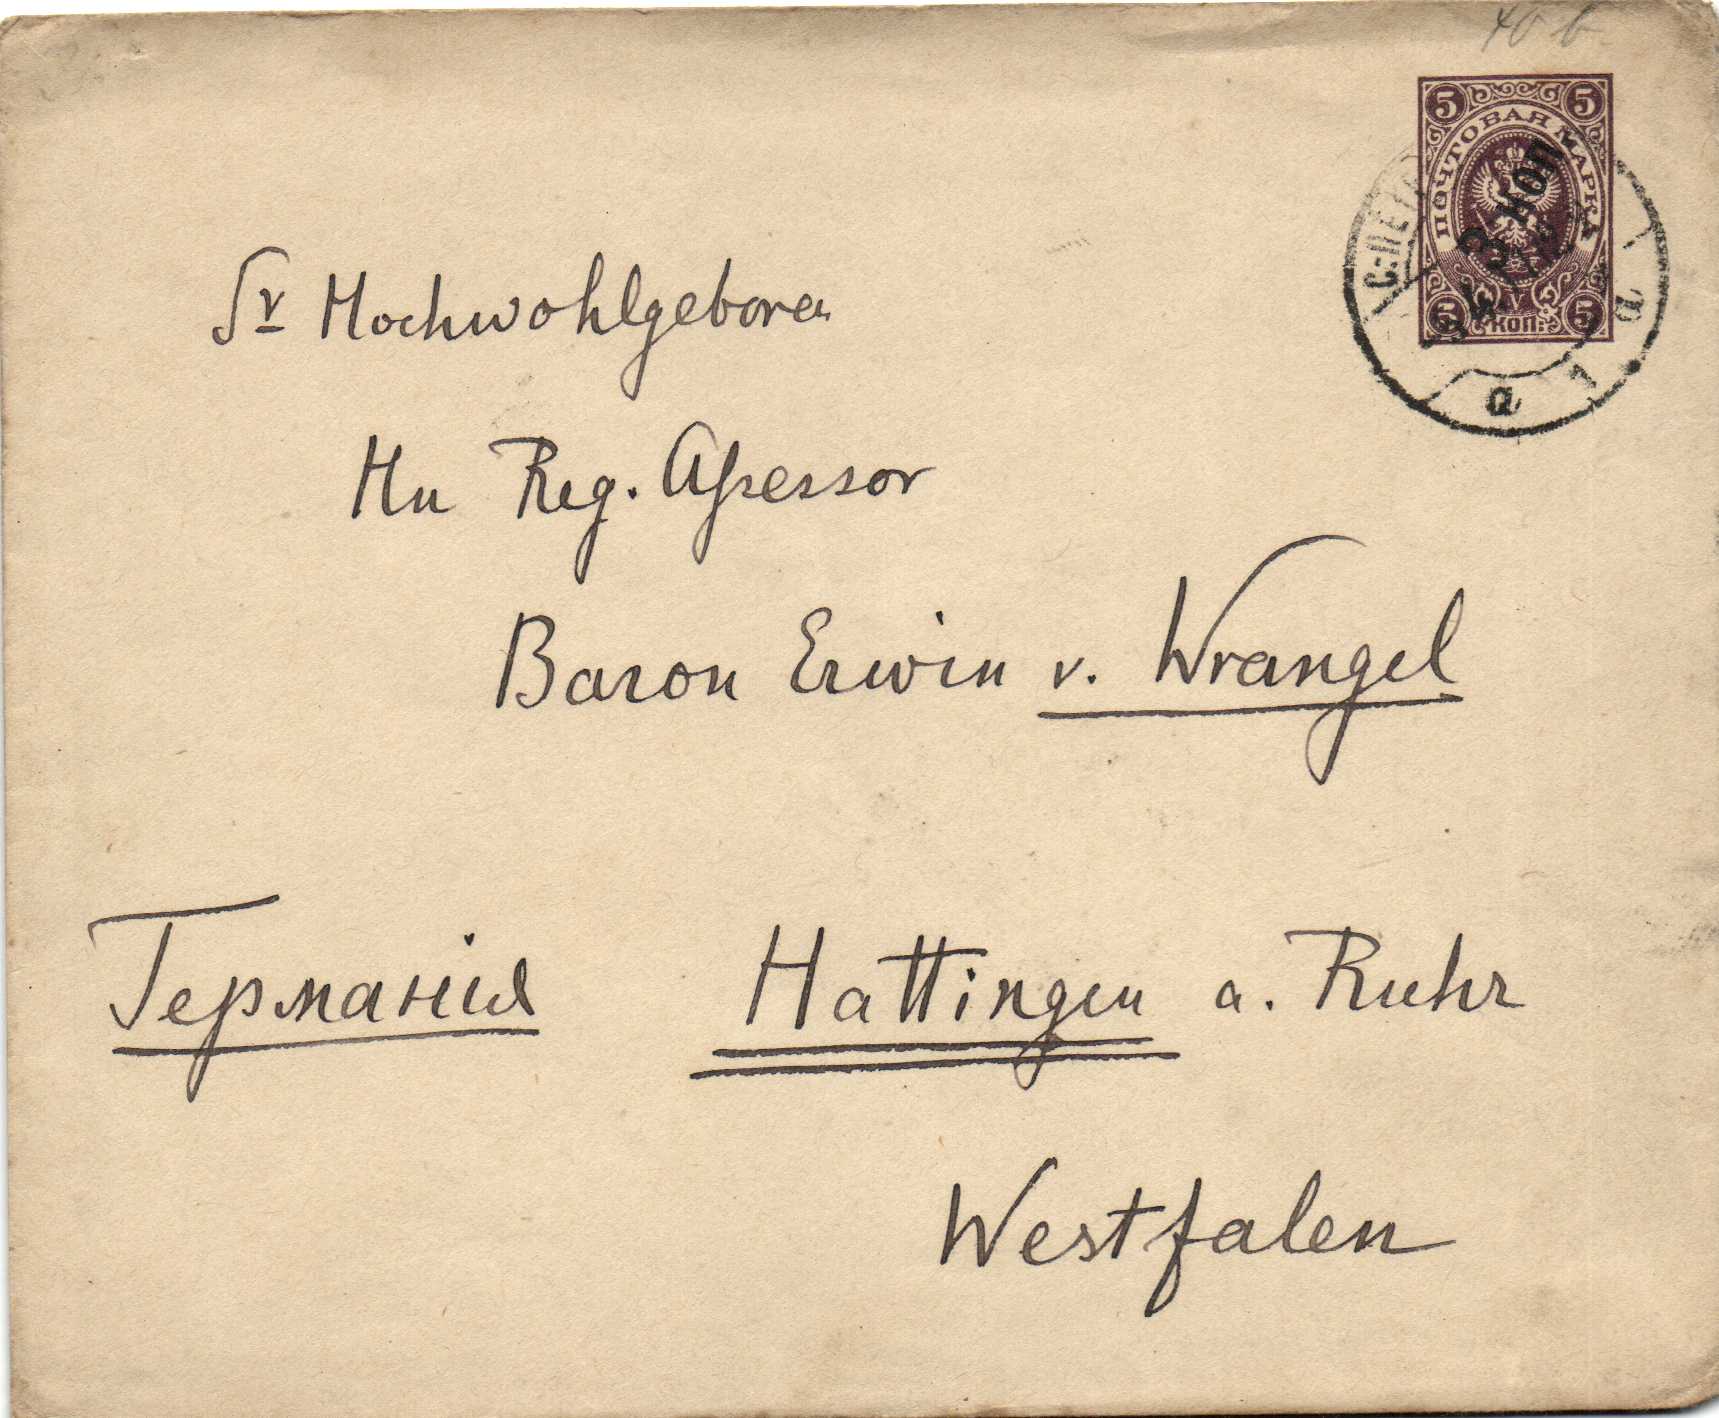 40 b
5 5
ПОЧТОВАЯ МАРКА
3 коп
5 КОП: 5
a
a
Sr Hochwohlgeboren
Hn Reg. Aſsessor
Baron Erwin v. Wrangel
Германія Hattingen a. Ruhr
Westfalen